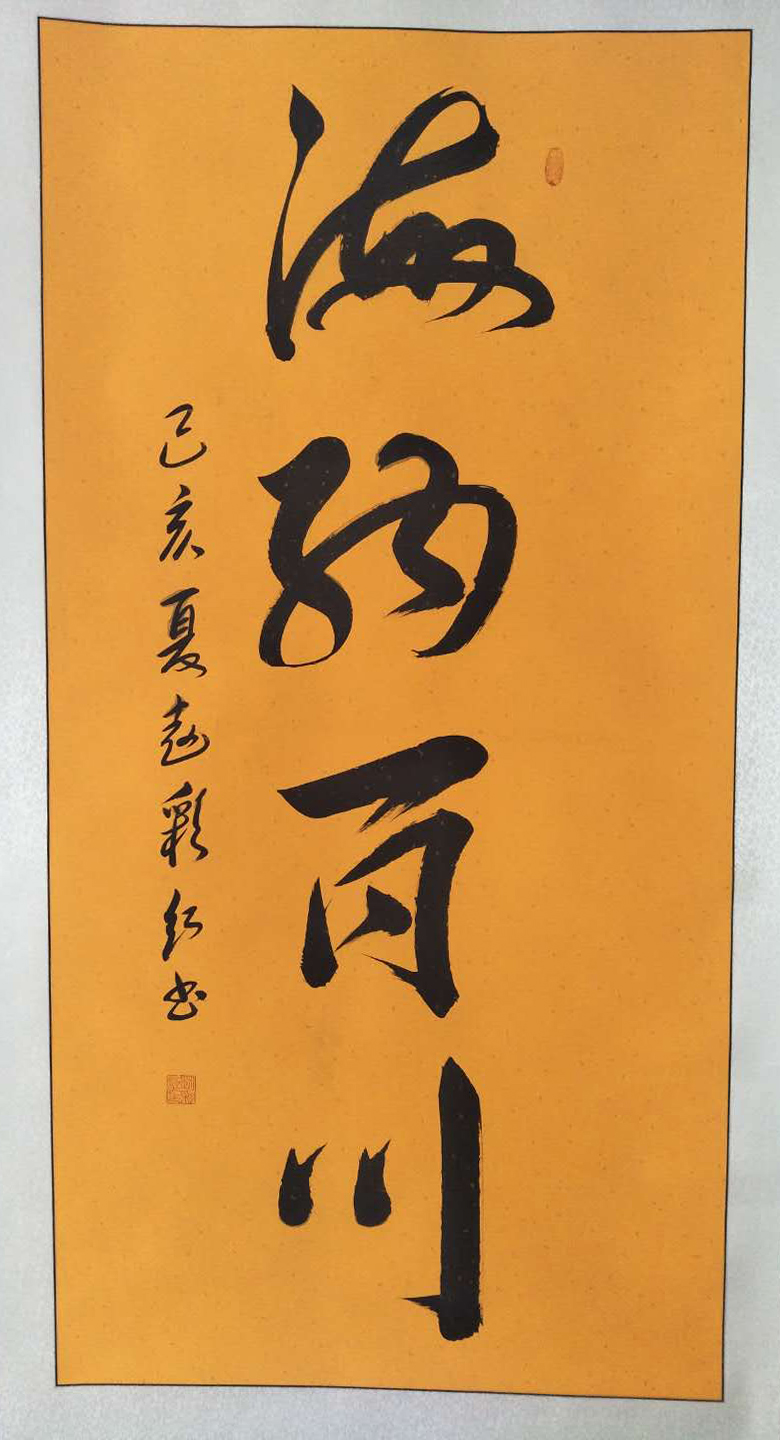 海纳百川
己亥夏赵彩红书